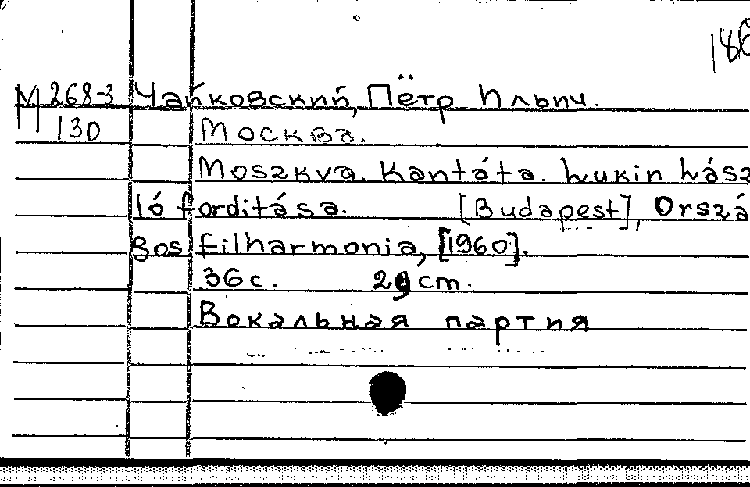 186
М 268-3 Чайковский, Пётр Ильич.
130 Москва.
Moszkva. Kantáta. Lukin Lász
ló forditása. [Budapest], Orszá
gos filharmonia, [1960].
36 с. 29 cm.
Вокальная партия